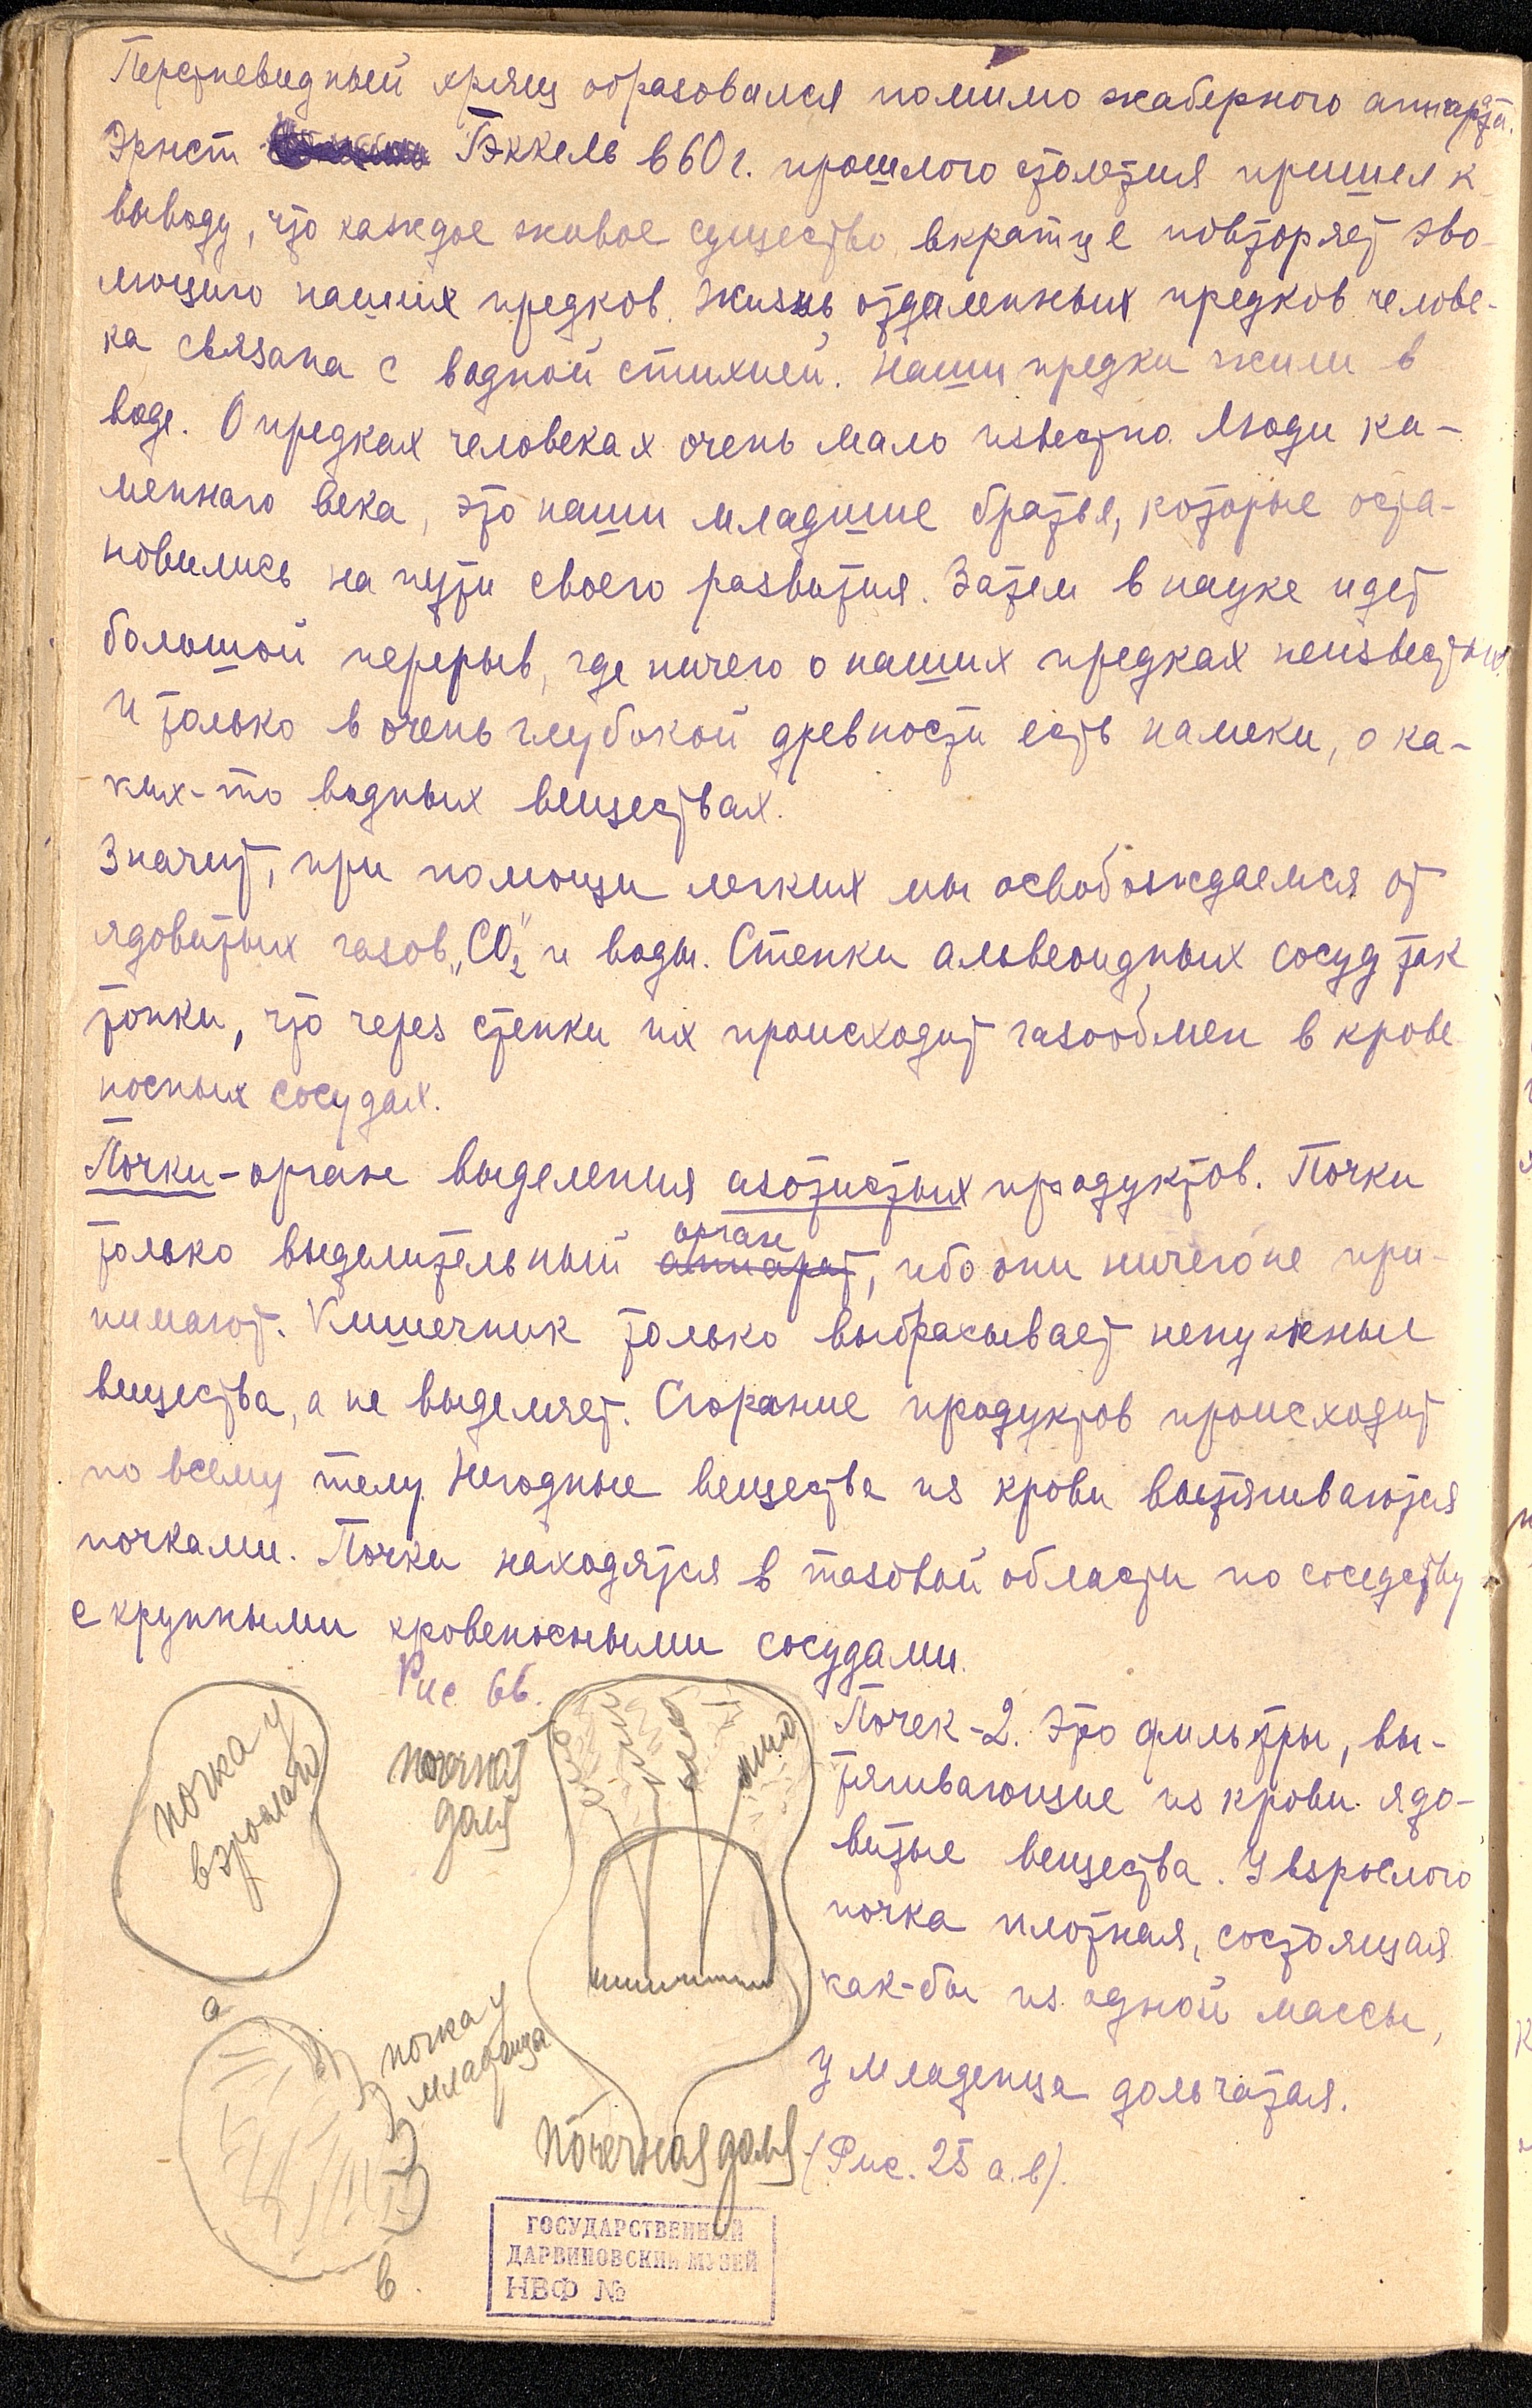 Перстневидный хрящ образовался помимо жаберного аппарата.
Эрнст Гэккель в 60 г. прошлого столетия пришел к
выводу, что каждое живое существо вкратце повторяет эво-
люцию наших предков. Жизнь отдаленных предков челове-
ка связана с водной стихией. Наши предки жили в
воде. О предках человеках очень мало известно. Люди ка-
менного века, это наши младшие братья, которые оста-
новились на пути своего развития. Затем в науке идет
большой перерыв, где ничего о наших предках неизвестно.
И только в очень глубокой древности есть намеки, о ка-
ких-то водных веществах.
Значит, при помощи легких мы освобождаемся от
ядовитых газов „СО₂" и воды. Стенки альвеоидных сосуд так
тонки, что через стенки их происходит газообмен в крове
носных сосудах.
Почки - орган выделения азотистых продуктов. Почки
орган
только выделительный аппарат, ибо они ничего не при-
нимают. Кишечник только выбрасывает ненужные
вещества, а не выделяет. Сгорание продуктов происходит
по всему телу. Негодные вещества из крови вытягиваются
почками. Почки находятся в тазовой области по соседству
с крупными кровеносными сосудами.
Рис 66.
почка у
взрослого
а
почечная
доля
Почек - 2. Это фильтры, вы-
тягивающие из крови ядо-
витые вещества. У взрослого
почка плотная, состоящая
как-бы из одной массы,
У младенца дольчатая.
(Рис. 25 а.в).
почка у
младенца
в.
Почечная доля
ГОСУДАРСТВЕННЫЙ
ДАРВИНОВСКИЙ МУЗЕЙ
НВФ №